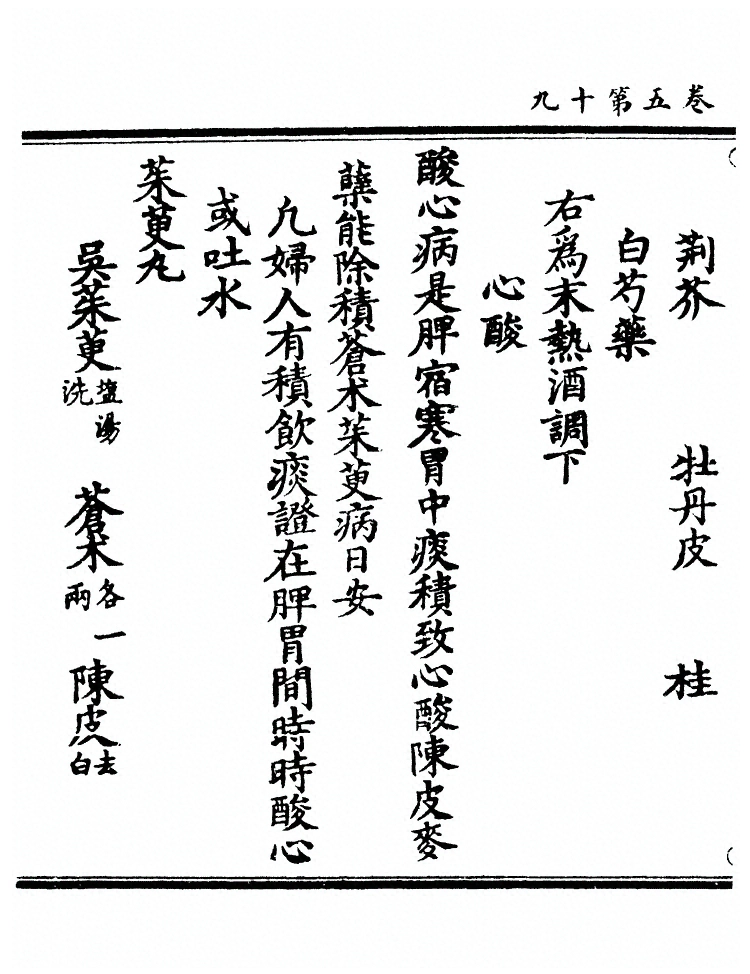 卷五第十九
荆芥　牡丹皮　桂
白芍藥
右爲末熱酒調下
心酸
酸心病是脾宿寒胃中痰積致心酸陳皮麥
蘗能除積蒼术茱萸病日安
凢婦人有積飲痰證在脾胃間時時酸心
或吐水
茱萸丸
吳茱萸盐湯洗　蒼术各一兩　陳皮去白